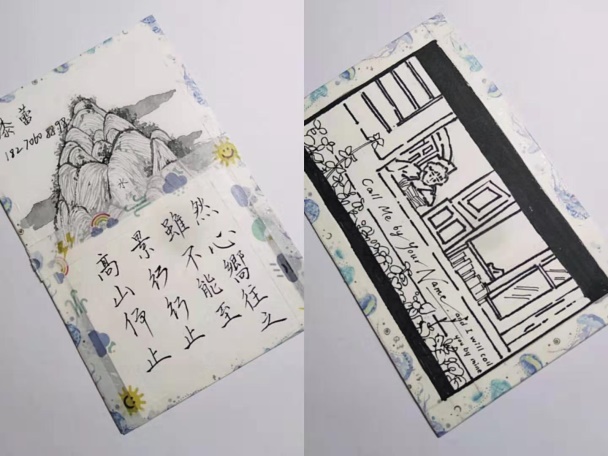 高山仰止
景行行止
雖不能至
然心嚮往之
Call Me by Your Name
and I will call
you by mine